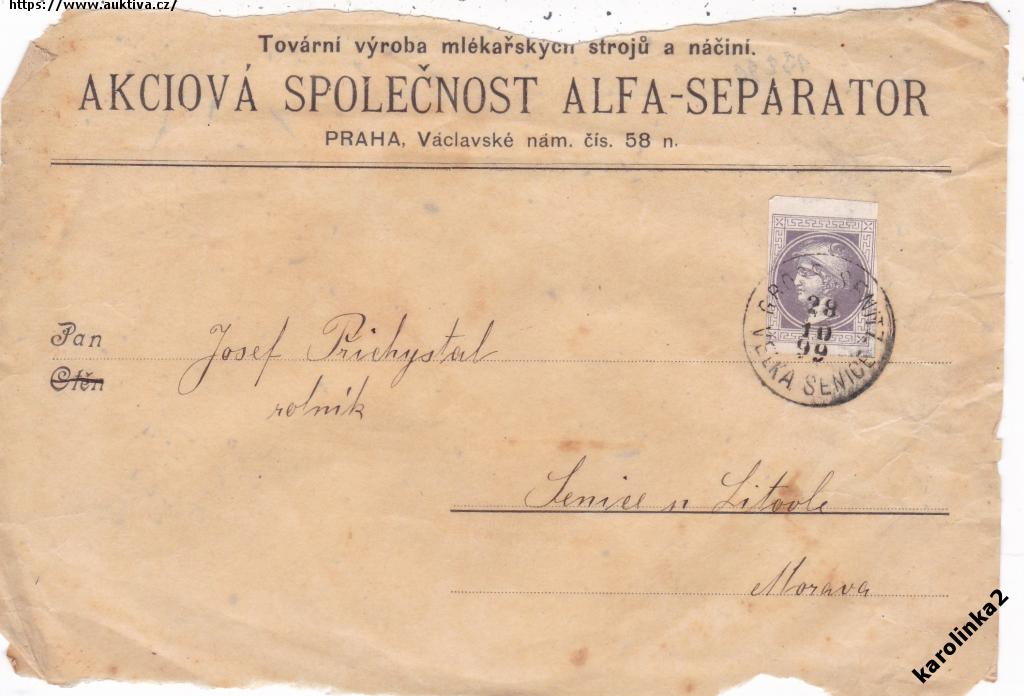 https://www.auktiva.cz/
Tovární výroba mlékařských strojů a náčiní.
AKCIOVÁ SPOLEČNOST ALFA-SEPARATOR
PRAHA, Václavské nám. čís. 58 n.
28
10
99
VELKÁ SENICE
Pan Josef Přichystal
Ctěn
rolník
Senice u Litovle
Morava
karolinka2